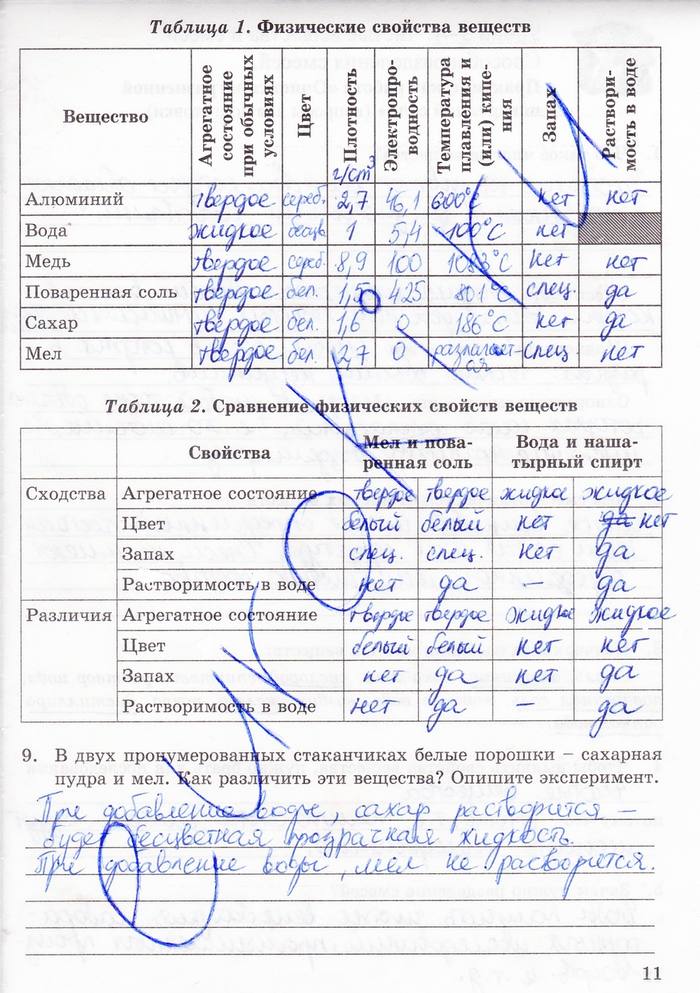 Таблица 1. Физические свойства веществ
Вещество | Агрегатное состояние при обычных условиях | Цвет | Плотность г/cm³ | Электропроводность | Температура плавления и (или) кипения | Запах | Раствори-мость в воде
Алюминий | твердое | сереб. | 2,7 | 46,1 | 600°C | нет | нет
Вода | жидкое | бесцв | 1 | 5,4 | 100°C | нет
Медь | твердое | сереб. | 8,9 | 100 | 1083°C | нет | нет
Поваренная соль | твердое | бел. | 1,5 | 425 | 801°C | спец. | да
Сахар | твердое | бел. | 1,6 | 0 | 186°C | нет | да
Мел | твердое | бел. | 2,7 | 0 | разлагает-ся | спец | нет
Таблица 2. Сравнение физических свойств веществ
Свойства | Мел и пова-ренная соль | Вода и наша-тырный спирт
Сходства | Агрегатное состояние | твердое | твердое | жидкое | жидкое
Цвет | белый | белый | нет | да нет
Запах | спец. | спец. | нет | да
Растворимость в воде | нет | да | – | да
Различия | Агрегатное состояние | твердое | твердое | жидкое | жидкое
Цвет | белый | белый | нет | нет
Запах | нет | да | нет | да
Растворимость в воде | нет | да | – | да
9. В двух пронумерованных стаканчиках белые порошки – сахарная
пудра и мел. Как различить эти вещества? Опишите эксперимент.
При добавление воды, сахар растворится –
будет бесцветная прозрачная жидкость.
При добавление воды, мел не расворится.
11